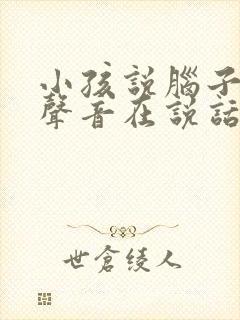 小孩說腦子
聲音在説話
世倉綾人